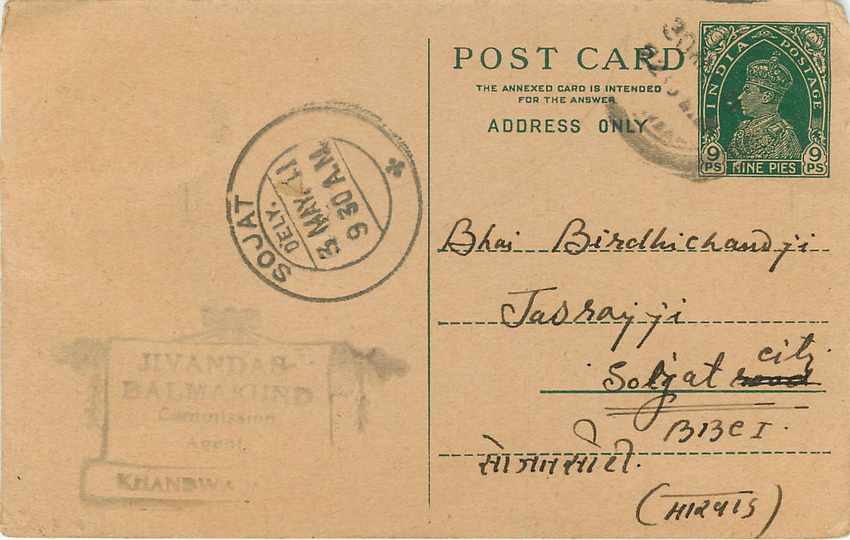 POST CARD
THE ANNEXED CARD IS INTENDED
FOR THE ANSWER
ADDRESS ONLY
INDIA POSTAGE
9 PS
9 PS
NINE PIES
SOJAT
DELY.
3 MAY. 41
9 30 A.M.
JIVANDAS
BALMAKUND
Commission
Agent
KHANDWA
Bhai Birdhichandji
Jasrajji
city
Sojat road
BBCI.
सोजतसीटी.
(मारवाड)